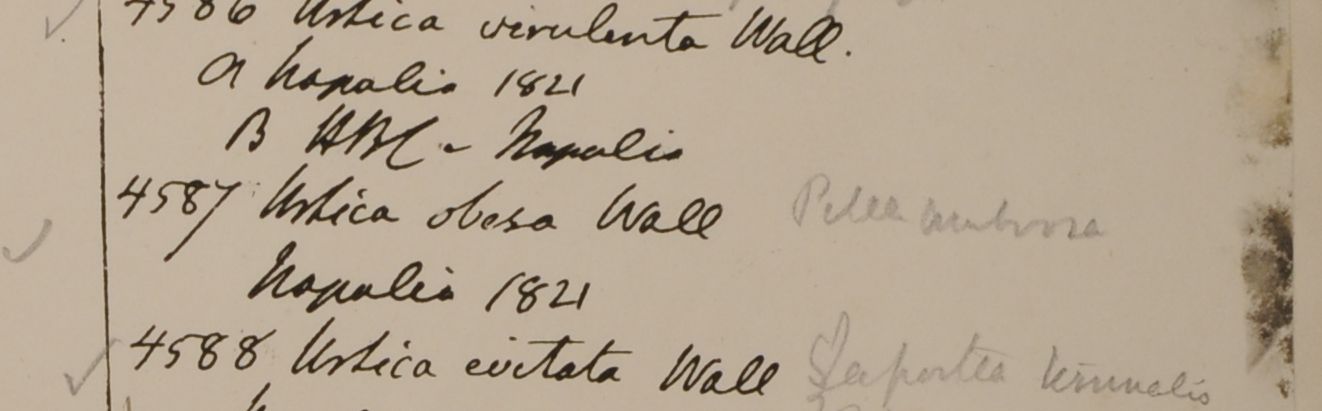 4586 Urtica virulenta Wall.
a Napalia 1821
B HBC - Napalia
4587 Urtica obesa Wall Pilea umbrosa
Napalia 1821
4588 Urtica evitata Wall Laportea terminalis